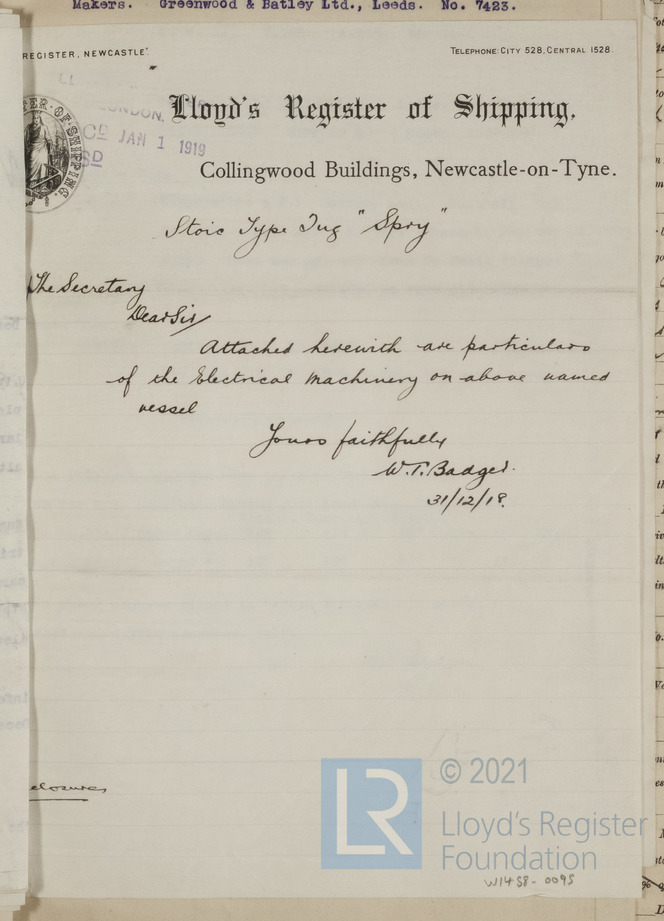 Makers. Greenwood & Batley Ltd., Leeds. No. 7423.
REGISTER, NEWCASTLE".
TELEPHONE: CITY 528, CENTRAL 1528.
Lloyd's Register of Shipping,
LONDON.
JAN 1 1919
Collingwood Buildings, Newcastle-on-Tyne.
Stoic Type Tug "Spry"
The Secretary
Dear Sir/
Attached herewith are particulars
of the Electrical Machinery on above named
vessel
Yours faithfully
W.T. Badger.
31/12/18.
closures
LR
© 2021
Lloyd's Register
Foundation
W1458-0095